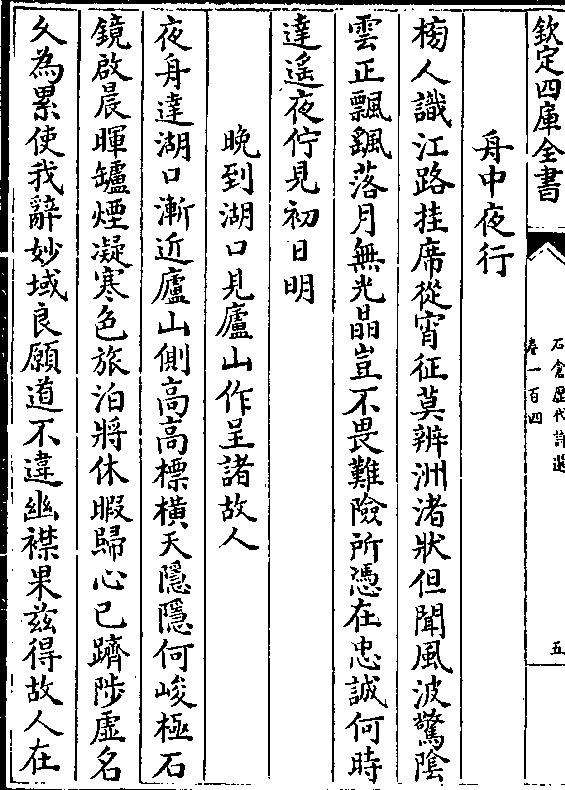 欽定四庫全書
石倉歷代詩選
卷一百四
五
舟中夜行
榜人識江路挂席從宵征莫辨洲渚狀但聞風波驚陰
雲正飄颻落月無光晶豈不畏難險所憑在忠誠何時
達遥夜佇見初日明
晚到湖口見廬山作呈諸故人
夜舟達湖口漸近廬山側高高標橫天隱隱何峻極石
鏡啟晨暉罏煙凝寒色旅泊將休暇歸心已躋陟虛名
乆為累使我辭妙域良願道不違幽襟果兹得故人在